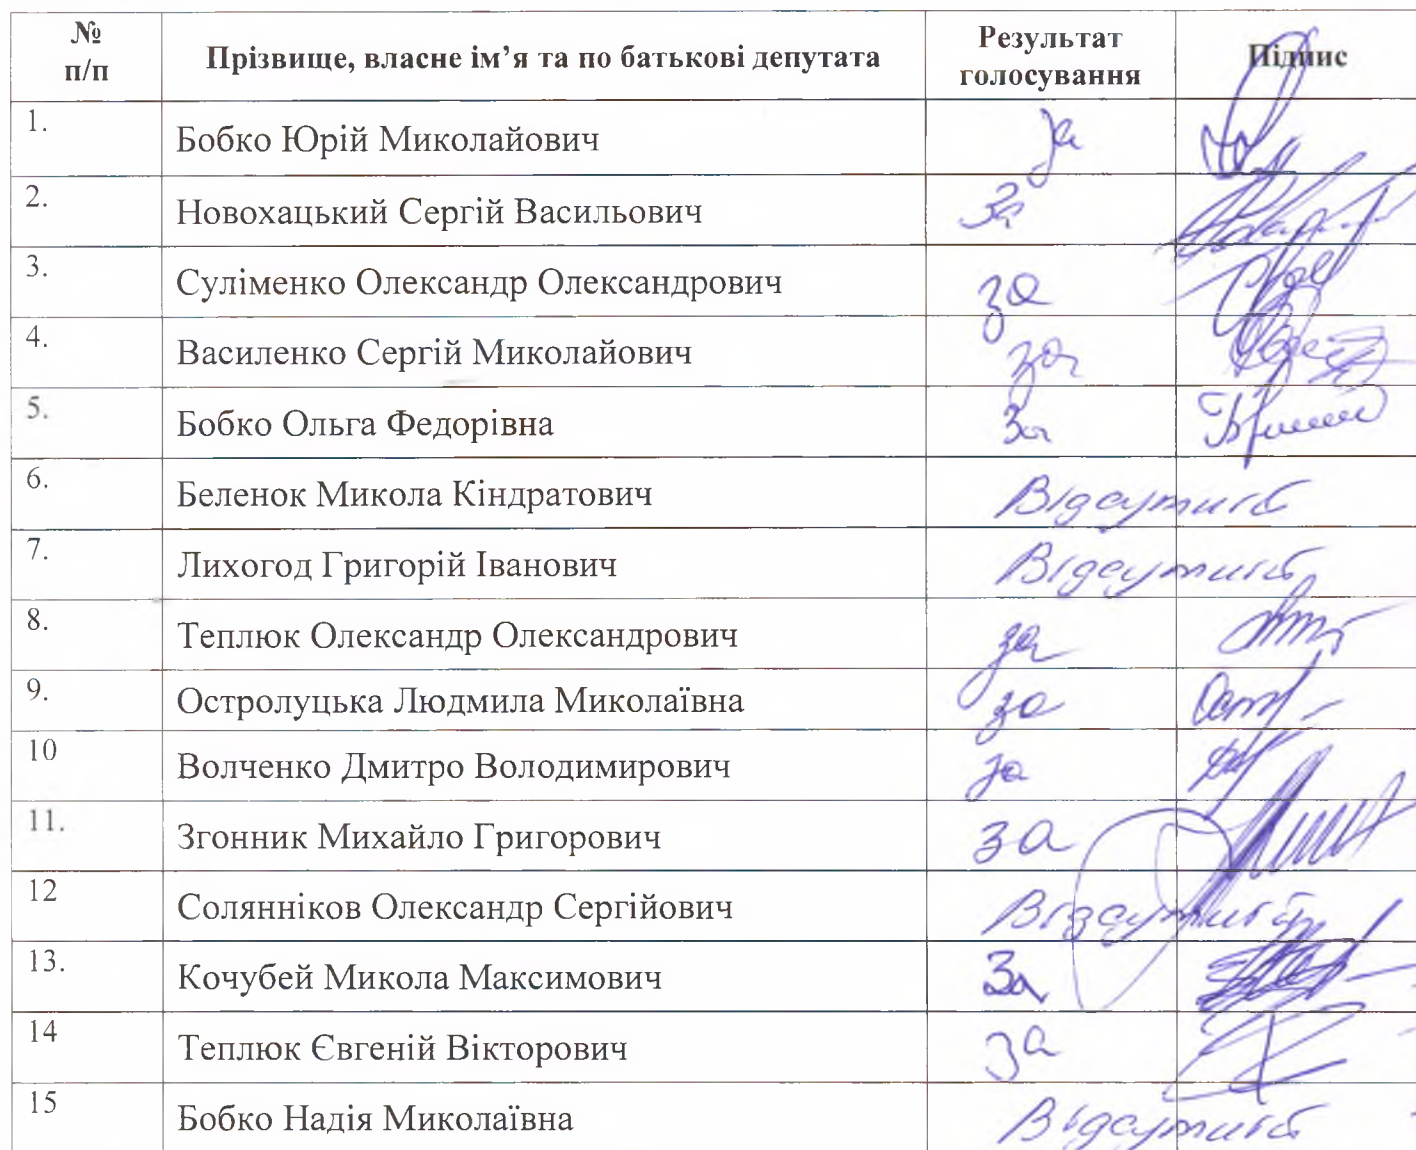 № п/п Прізвище, власне ім’я та по батькові депутата Результат голосування Підпис
1. Бобко Юрій Миколайович за
2. Новохацький Сергій Васильович За
3. Суліменко Олександр Олександрович за
4. Василенко Сергій Миколайович за
5. Бобко Ольга Федорівна За
6. Беленок Микола Кіндратович Відсутній
7. Лихогод Григорій Іванович Відсутній
8. Теплюк Олександр Олександрович за
9. Остролуцька Людмила Миколаївна за
10 Волченко Дмитро Володимирович за
11. Згонник Михайло Григорович за
12 Солянніков Олександр Сергійович Відсутній
13. Кочубей Микола Максимович За
14 Теплюк Євгеній Вікторович за
15 Бобко Надія Миколаївна Відсутня